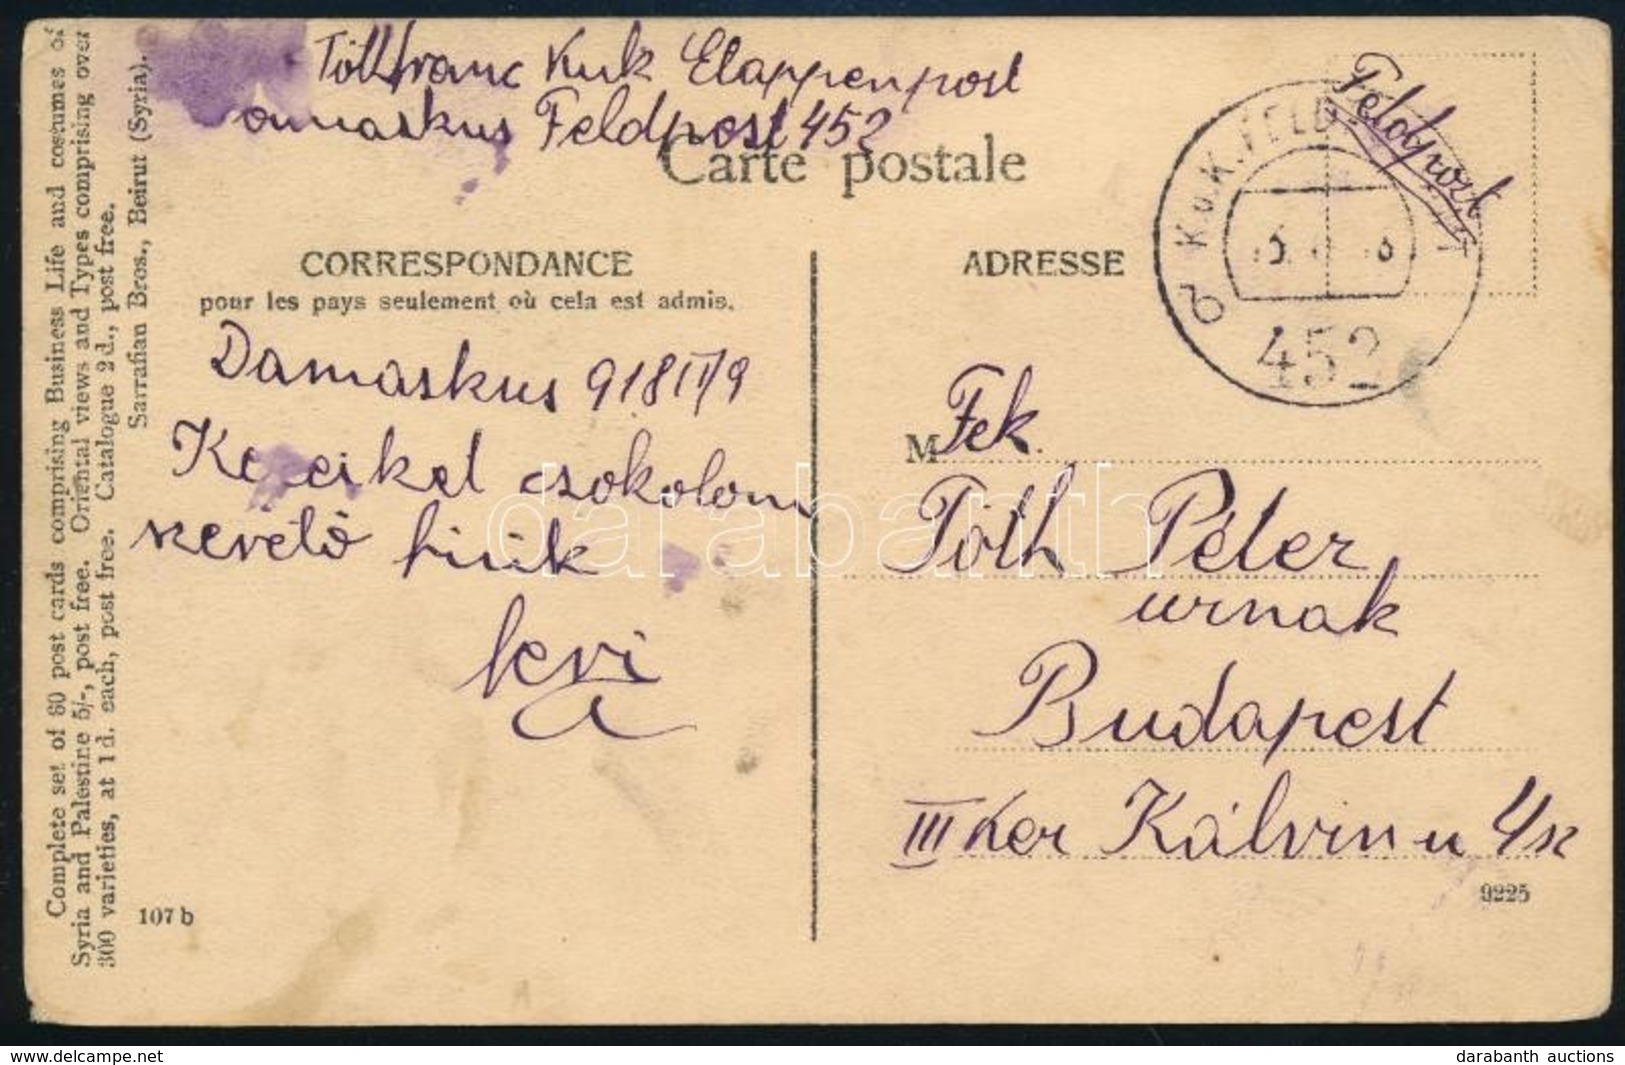 Tóth Franc Kuk Etappenpost
Damaskus Feldpost 452
Carte postale
Feldpost
K.u.K. FELDPOST
452
CORRESPONDANCE
pour les pays seulement où cela est admis.
ADRESSE
Damaskus 918 II/9
csokolom
szerető
M Fek.
Tóth Péter
urnak
Budapest
III Ker Kálvin u 4 sz
9225
107 b
Complete set of 60 post cards comprising Business Life and costumes of
Syria and Palestine 5/-, post free. Oriental views and Types comprising over
300 varieties, at 1 d. each, post free. Catalogue 2 d., post free.
Sarrafian Bros., Beirut (Syria).
darabanth
www.delcampe.net
darabanth auctions